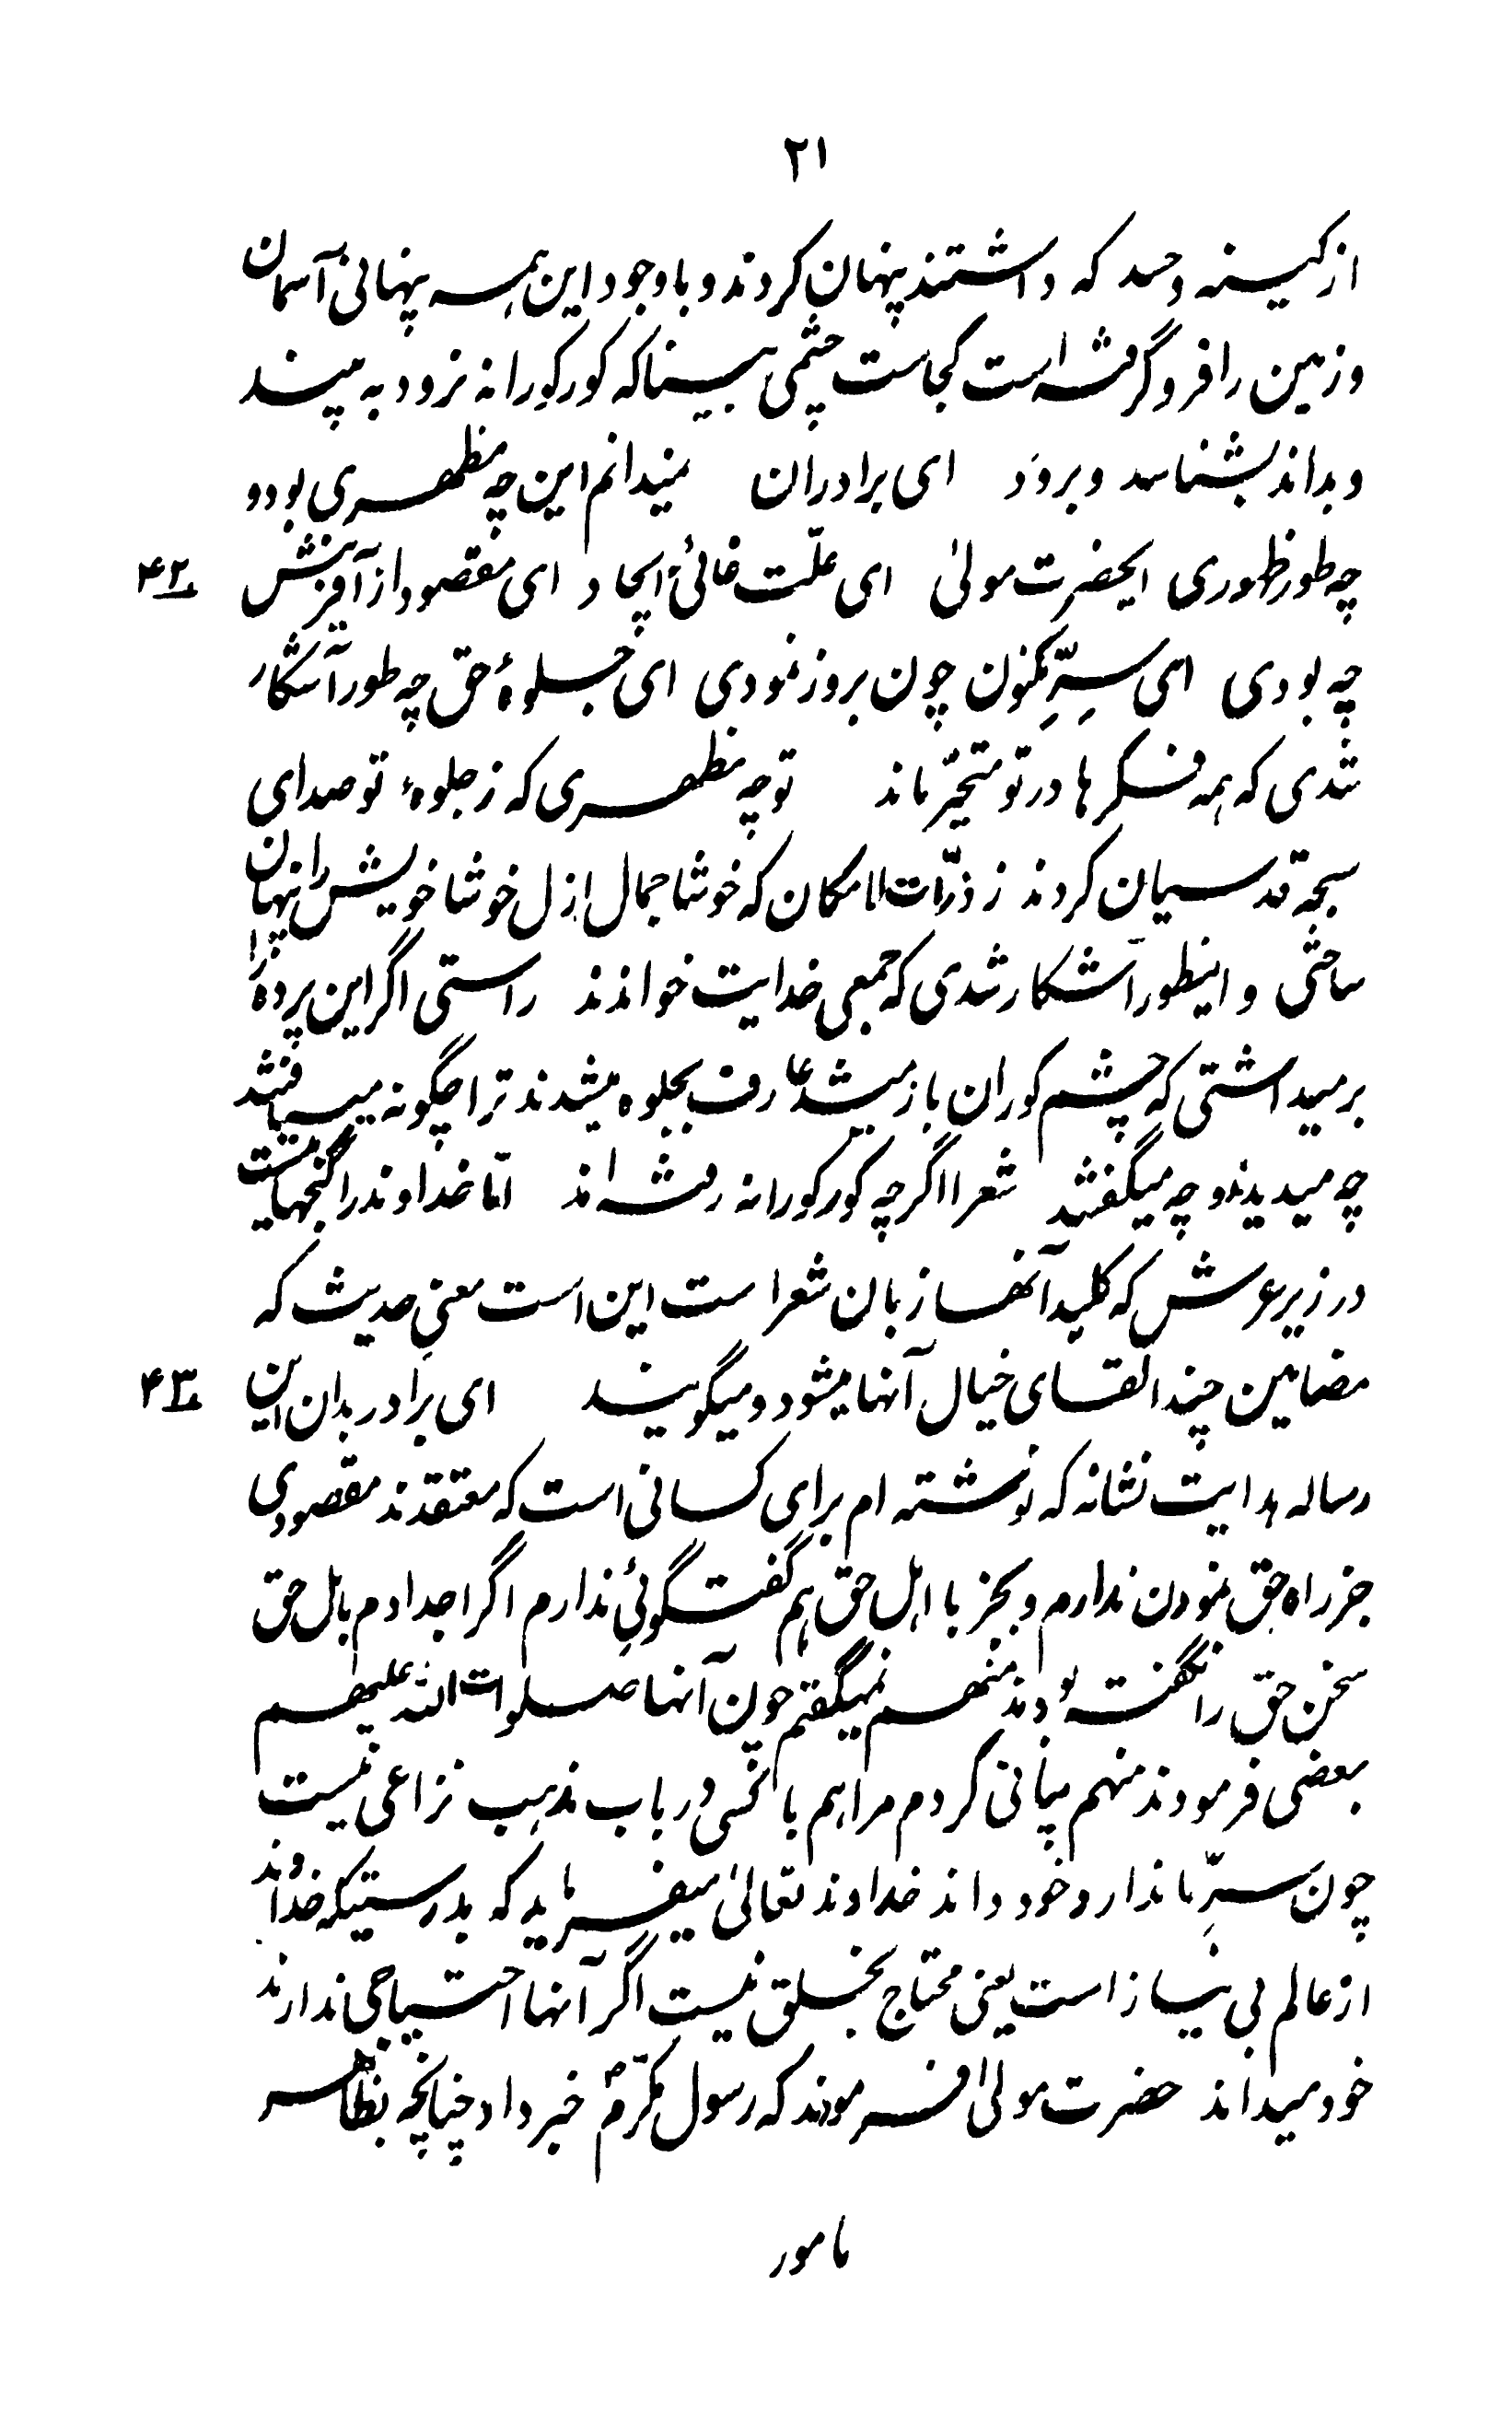 ۲۱
از کینه و حسد که داشتند پنهان کردند و با وجود این همه پنهانی آسمان
و زمین را فرو گرفته است کجاست چشمی بینا که کور کورانه نرود به بیند
و بداند بشناسد و برود ای برادران نمیدانم این چه مظهری بود و
چه طور ظهوری ایحضرت مولیٰ ای علّت غائیۀ ایجاد ای مقصود از آفرینش
۴۲
چه بودی ای سِرِّ مکنون چون بروز نمودی ای جلوۀ حق چه طور آشکار
شدی که همه فکرها در تو متحیّر ماند تو چه مظهری که ز جلوۀ تو صدای
سبحۀ قدسیان کردند ز ذرّات لامکان که خوشا جمال ازل خوشا خویش را نهان
ساختی و اینطور آشکار شدی که جمعی خدایت خواندند راستی اگر این پرده را
برمیداشتی که چشم کوران باز میشد عارف بجلوه میشدند ترا چگونه مییافتند
چه میدیدند و چه میگفتند شعرا اگرچه کورکورانه رفته اند امّا خداوند را گنجهائیست
در زیر عرش که کلید آنها زبان شعراست این است معنیِ حدیث که
مضامین چند القای خیال آنها میشود و میگویند ای برادر بدان این
۴۳
رساله هدایت نشانه که نوشته ام برای کسانی است که معتقدند مقصودی
جز راه حق نمودن ندارم و بجز با اهل حق هم گفتگوئی ندارم اگر اجدادم باهل حق
سخن حق را نگفته بودند منهم نمیگفتم چون آنها صلوات الله علیهم
بعضی فرمودند منهم بیانی کردم مرا هم با کسی در باب مذهب نزاعی نیست
چون سِرِّ ما ندارد خود داند خداوند تعالیٰ میفرماید که بدرستیکه خداوند
از عالم بی نیاز است یعنی محتاج بخلق نیست اگر آنها احتیاجی ندارند
خود میداند حضرت مولیٰ فرمودند که رسول مکرّم ص خبر داد چنانچه بظاهر
مامور